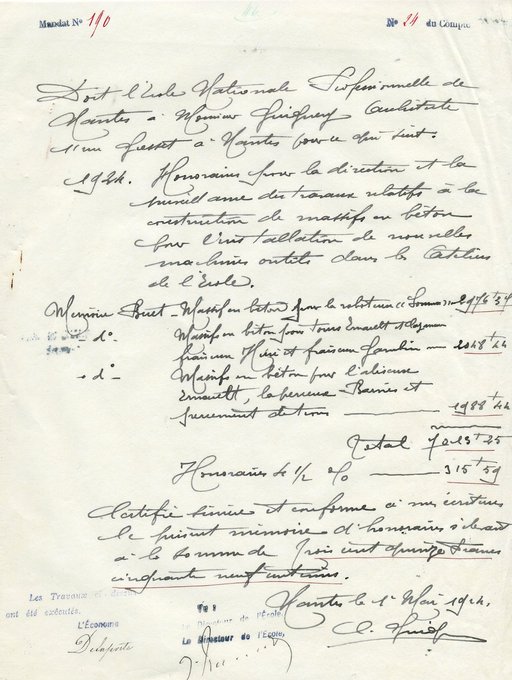 Mandat Nº 190
Nº 24 du Compte
Doit l'Ecole Nationale Professionnelle de
Nantes à Monsieur Guiguery Architecte
11 rue Gresset à Nantes pour ce qui suit:
1924. Honoraires pour la direction et la
surveillance des travaux relatifs à la
construction de massifs en béton
pour l'installation de nouvelles
machines outils dans les Ateliers
de l'Ecole.
Mémoire - Massif en béton pour la raboteuse " 2976f 37
dº Massifs en béton pour Tours Ernault et
fraiseuse Huré et fraiseuse 2048f 44
dº Massifs en béton pour l'aléseuse
Ernault, la perceuse Barriès et
1988f 44
Total 7013f 25
Honoraires 4 1/2 % 315f 59
Certifié sincère et conforme à mes écritures
le présent mémoire d'honoraires s'élevant
à la somme de Trois cent quinze Francs
cinquante neuf centimes.
Nantes le 1er Mai 1924.
Les Travaux et dessus
ont été exécutés.
L'Économe
Delaporte
Vu :
Le Directeur de l'École,
Le Directeur de l'École,